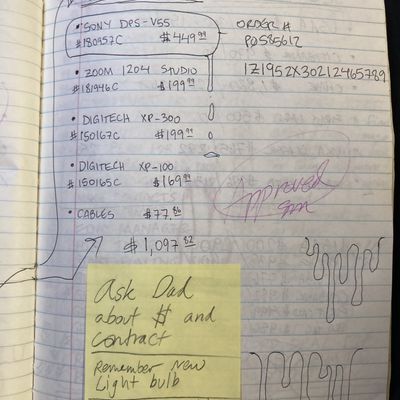 • SONY DPS-V55
#180957C $449.99
• ZOOM 1204 STUDIO
#181946C $199.99
• DIGITECH XP-300
#150167C $199.99
• DIGITECH XP-100
#150165C $169.99
• CABLES $77.86
$1,097.82
ORDER #
POS85612
1Z1952X30212465789
Approved
Ask Dad
about $ and
contract
Remember New
Light bulb